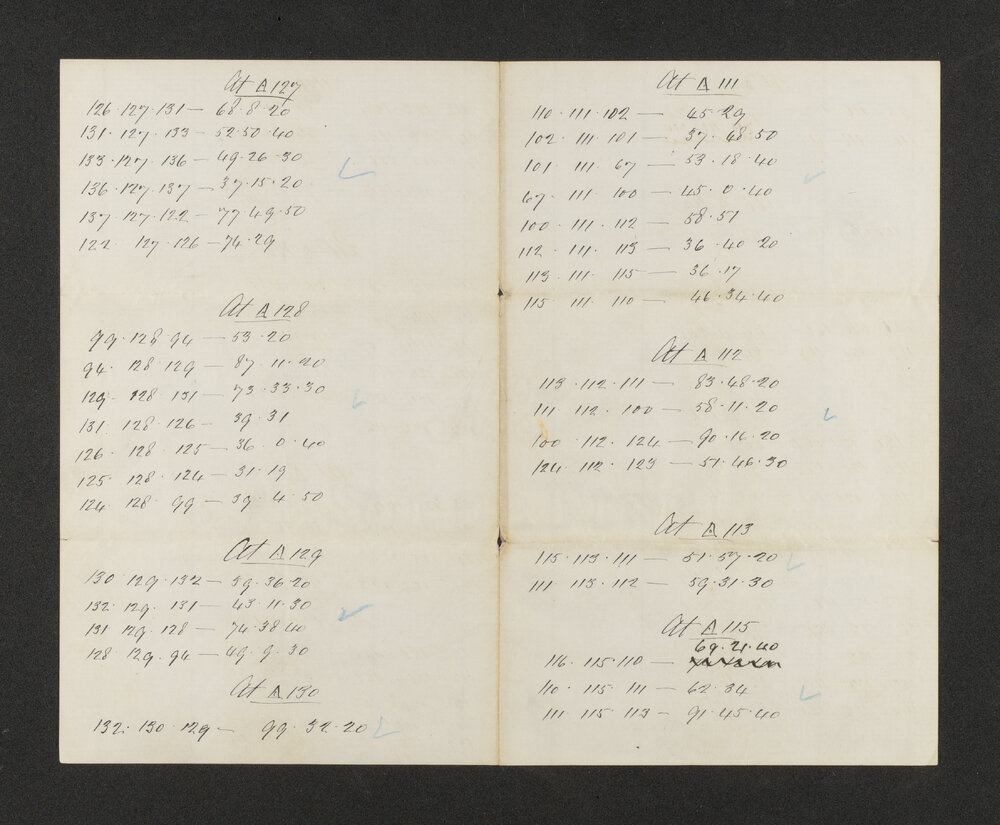 At Δ 127
126 · 127 · 131 — 68 · 8 · 20
131 · 127 · 133 — 52 · 50 · 40
133 · 127 · 136 — 49 · 26 · 30
136 · 127 · 137 — 37 · 15 · 20
137 · 127 · 122 — 77 · 49 · 50
122 127 · 126 — 74 · 29
At Δ 128
99 · 128 94 — 53 · 20
94 · 128 129 — 87 · 11 · 20
129 · 128 131 — 73 · 33 · 30
131 · 128 · 126 — 39 · 31
126 · 128 · 125 — 36 · 0 · 40
125 · 128 · 124 — 31 · 19
124 128 · 99 — 39 · 4 · 50
At Δ 129
130 129 · 132 — 59 · 36 · 20
132 · 129 · 131 — 43 · 11 · 30
131 129 · 128 — 74 · 38 · 40
128 · 129 · 94 — 49 · 9 · 30
At Δ 130
132 · 130 · 129 — 99 · 32 · 20
At Δ 111
110 · 111 · 102 — 45 · 29
102 · 111 · 101 — 37 · 48 · 50
101 · 111 · 67 — 53 · 18 · 40
67 · 111 · 100 — 45 · 0 · 40
100 · 111 · 112 — 58 · 51
112 · 111 · 113 — 36 · 40 · 20
113 · 111 · 115 — 36 · 17
115 · 111 · 110 — 46 · 34 · 40
At Δ 112
113 · 112 · 111 — 83 · 48 · 20
111 112 · 100 — 58 · 11 · 20
100 · 112 · 124 — 90 · 16 · 20
124 112 · 123 — 51 · 46 · 30
At Δ 113
115 · 113 · 111 — 51 · 57 · 20
111 · 113 · 112 — 59 · 31 · 30
At Δ 115
69 · 21 · 40
116 · 115 · 110 —
110 · 115 · 111 — 62 · 34
111 · 115 · 113 — 91 · 45 · 40